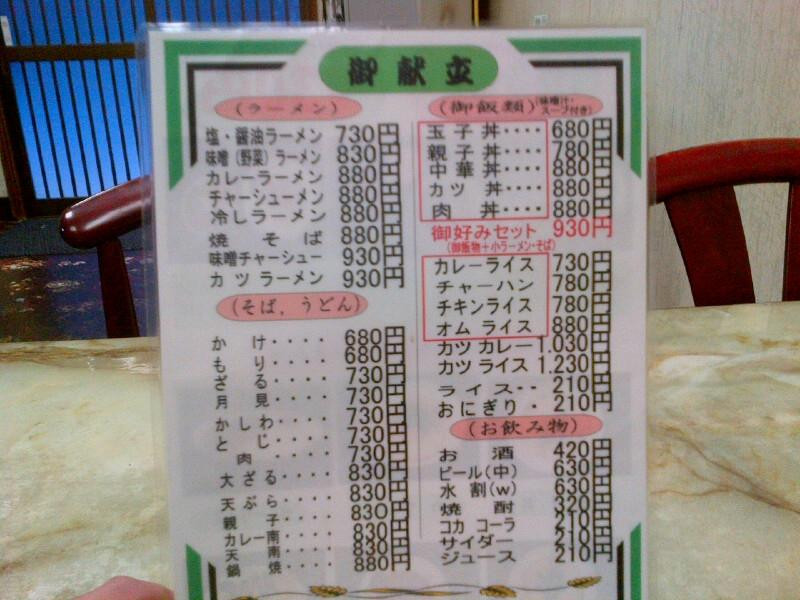 御献立
(ラーメン)
塩・醤油ラーメン 730円
味噌(野菜)ラーメン 830円
カレーラーメン 880円
チャーシューメン 880円
冷しラーメン 880円
焼そば 880円
味噌チャーシュー 930円
カツラーメン 930円
(そば、うどん)
かけ・・・・ 680円
もり・・・・ 680円
ざる・・・・ 730円
月見・・・・ 730円
かしわ・・・・ 730円
とじ・・・・ 730円
肉・・・・ 730円
大ざる・・・・ 830円
天ぷら・・・・ 830円
親子・・・・ 830円
カレー南・・・・ 830円
天南・・・・ 830円
鍋焼・・・・ 880円
(御飯類)(味噌汁・スープ付き)
玉子丼・・・・ 680円
親子丼・・・・ 780円
中華丼・・・・ 880円
カツ丼・・・・ 880円
肉丼・・・・ 880円
御好みセット 930円
(御飯物+小ラーメン・そば)
カレーライス 730円
チャーハン 780円
チキンライス 780円
オムライス 880円
カツカレー 1.030円
カツライス 1.230円
ライス・・ 210円
おにぎり・ 210円
(お飲み物)
お酒 420円
ビール(中) 630円
水割(w) 630円
焼酎 320円
コカコーラ 210円
サイダー 210円
ジュース 210円